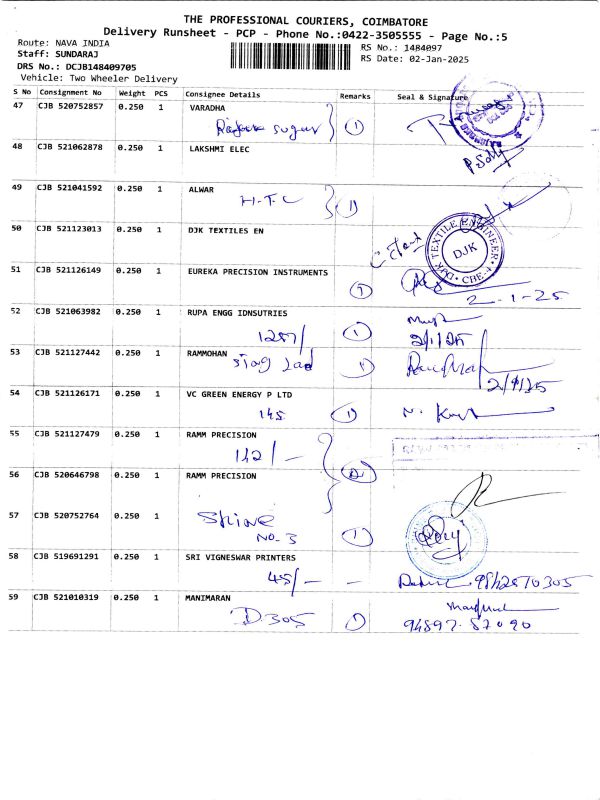 THE PROFESSIONAL COURIERS, COIMBATORE
Delivery Runsheet - PCP - Phone No.:0422-3505555 - Page No.:5
Route: NAVA INDIA
Staff: SUNDARAJ
DRS No.: DCJB148409705
Vehicle: Two Wheeler Delivery
RS No.: 1484097
RS Date: 02-Jan-2025
S No Consignment No Weight PCS Consignee Details Remarks Seal & Signature
47 CJB 520752857 0.250 1 VARADHA
sugar 1
48 CJB 521062878 0.250 1 LAKSHMI ELEC
49 CJB 521041592 0.250 1 ALWAR
H.T.C 1
50 CJB 521123013 0.250 1 DJK TEXTILES EN
DJK TEXTILE ENGINEER CBE-4
DJK
51 CJB 521126149 0.250 1 EUREKA PRECISION INSTRUMENTS
1 2-1-25
52 CJB 521063982 0.250 1 RUPA ENGG IDNSUTRIES
1287/ 1 2/1/25
53 CJB 521127442 0.250 1 RAMMOHAN
1 2/1/25
54 CJB 521126171 0.250 1 VC GREEN ENERGY P LTD
145 1
55 CJB 521127479 0.250 1 RAMM PRECISION
142/-
56 CJB 520646798 0.250 1 RAMM PRECISION
2
57 CJB 520752764 0.250 1
Shine
NO-3 1
58 CJB 519691291 0.250 1 SRI VIGNESWAR PRINTERS
45/- -
59 CJB 521010319 0.250 1 MANIMARAN
D.305 1 94897-57090